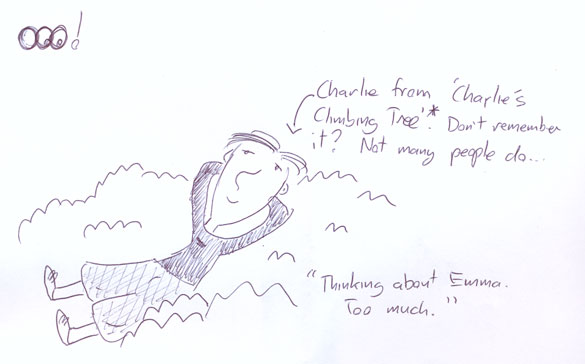 ooo!
Charlie from 'Charlie's
Climbing Tree'.* Don't remember
it? Not many people do...
"Thinking about Emma.
Too much."